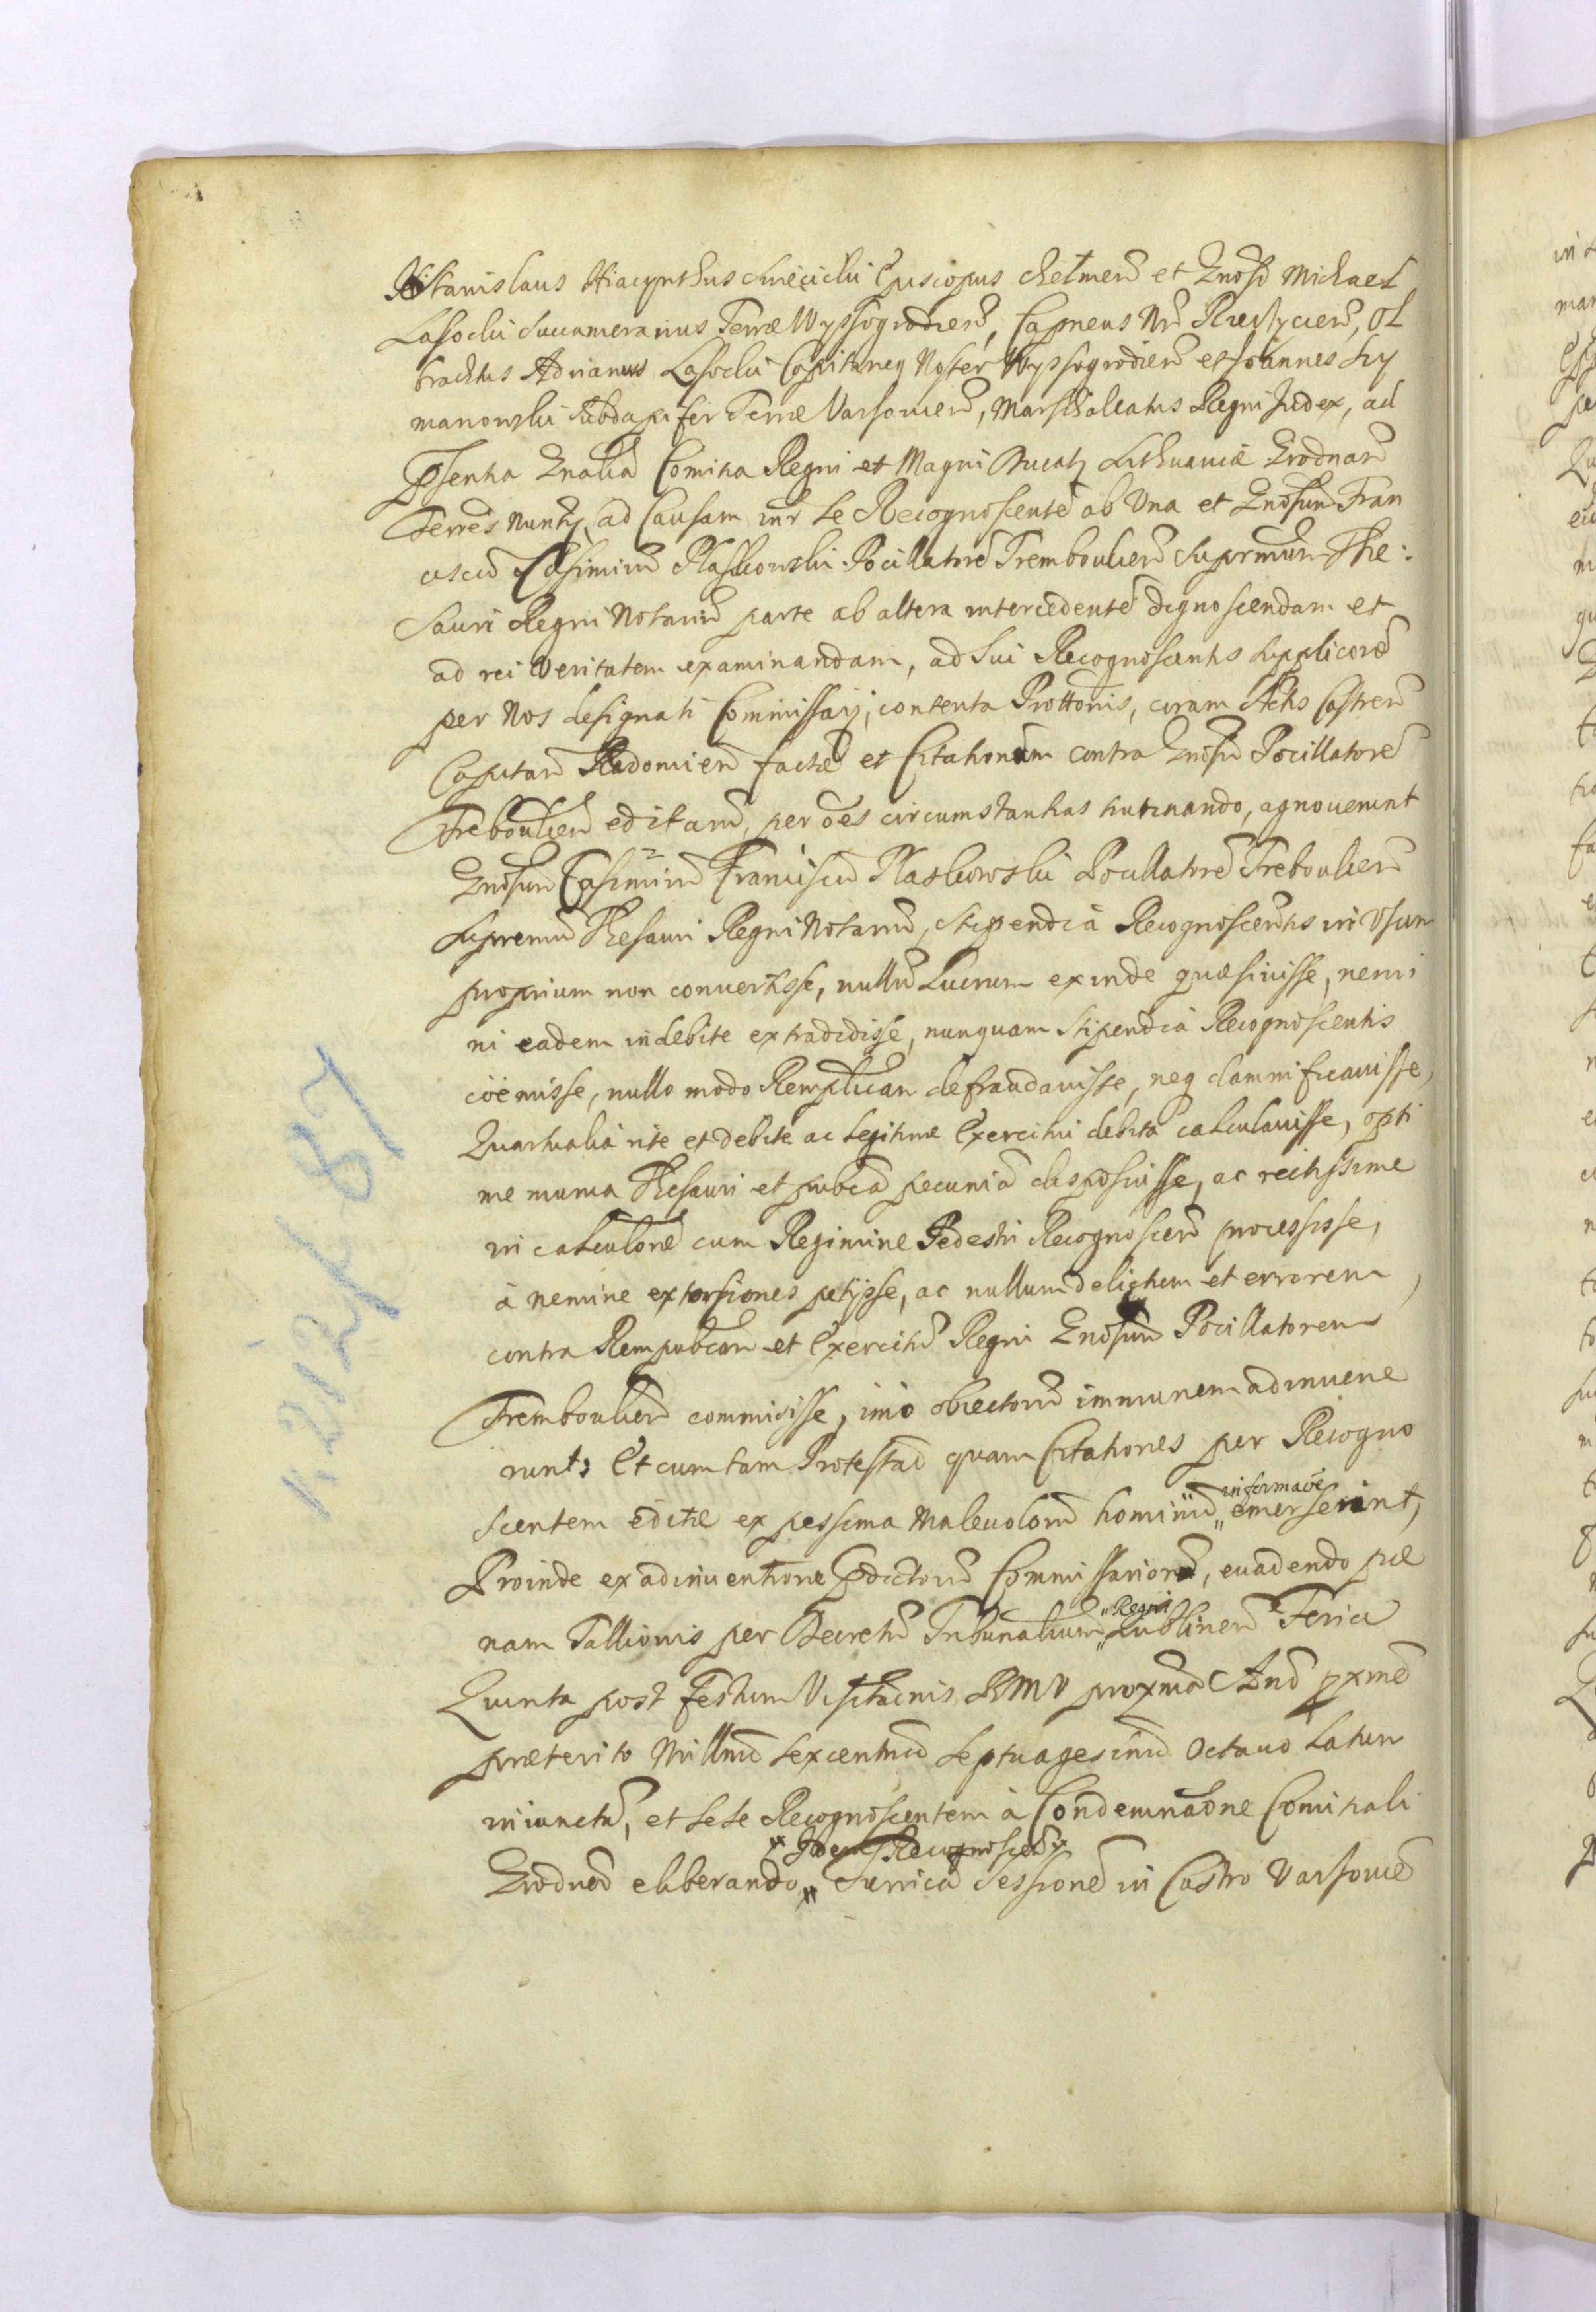 Stanislaus Hiacynthus Swięcicki Episcopus Chełmen̄ et Gnosi Michael
Lasocki Succamerarius Terræ Wyssogrodien̄, Capneus Nr̄ Ol
brachtus Adrianus Lasocki Capitaneq Noster Wyssogrodien̄ et Joannes Szy
manowski Subdapifer Terræ Varsovien̄, Marschaleatus Regni Judex, ad
Psentia Gnalia Comitia Regni et Magni Ducatq Lithuaniæ Grodnæ
Terres Nuntij ad Causam intr Se Recognoscente ab Una et Gnosum Fran
ciscū Casimirū Płaskowski Pocillatorē Tremboulien̄ Suprmum The:
sauri Regni Notariū parte ab altera intercedente dignoscendam et
ad rei Veritatem examinandam, ad Sui Recognoscentis Supplicōē
per Nos designati Commissarij, contenta Prottonis, coram Actis Castren̄
Capitan̄ Radomien̄ factæ et Citationum contra Gnosū Pocillatorē
Trēboulien̄ editarū, per oēs circumstantias trutinando, agnoverunt
Gnosum Casimirū Franciscū Płaskowski Pocillatorē Trēboulien̄
Supremū Thesauri Regni Notariū, Stipendia Recognoscentis in Usum
proprium non convertisse, nullū Lucrum exinde quæsivisse, nemi
ni eadem indebite extradidisse, nunquam Stipendia Recognoscentis
cöemisse, nullo modo Remplicam defraudavisse, neq damnificavisse,
Quartualia rite et debite ac legitime Exercitui debita calculavisse, opti
me munia Thesauri et pubcā pecuniā disposuisse, ac rectissime
in calculōnē cum Regimine Pedestri Recognoscen̄ processisse,
à nemine extorsiones petijsse, ac nullum delictum et errorem,
contra Rempubcam et Exercitū Regni Gnosum Pocillatorem
Tremboulien̄ commisisse, imò obiectorū immunem adinvene
runt; Et cum tam Protestaō quam Citationes per Recogno
scentem editæ ex pessima Malevolorū hominū "informaōē" emerserint,
Proinde ex adinventione Pdictorū Commissariorū, evadendo pæ
nam Tallionis per Decretū Tribunalium "Regni" Lublinen̄ Feria
Quinta post festum Visitaōnis BMV proxmā Anō pxmē
præterito Millmō Sexcentmō Septuagesimō Octavo Latum
iniunctū, et Sese Recognoscentem à Condemnaōne Comitiali
Grodnē eliberando x Idem Recognoscen̄ x Surrica Sessionē in Castro Varsovien̄